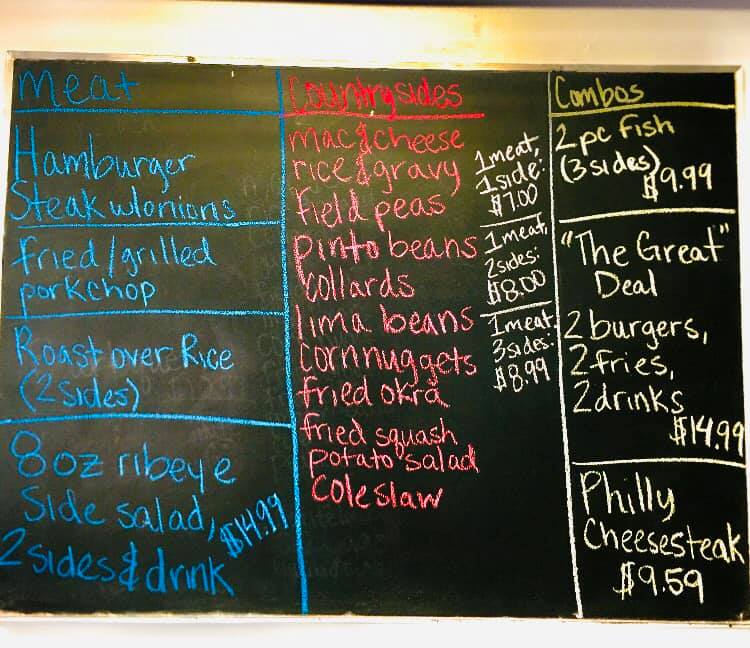 Meat
Hamburger
Steak w/onions
Fried/grilled
porkchop
Roast over Rice
(2 sides)
8oz ribeye
side salad,
2 sides & drink
$14.99
Country sides
mac & cheese
rice & gravy
field peas
pinto beans
collards
lima beans
corn nuggets
fried okra
fried squash
potato salad
Coleslaw
1 meat,
1 side:
$7.00
1 meat,
2 sides:
$8.00
1 meat,
3 sides:
$8.99
Combos
2 pc fish
(3 sides)
$9.99
"The Great"
Deal
2 burgers,
2 fries,
2 drinks
$14.99
Philly
Cheesesteak
$9.59